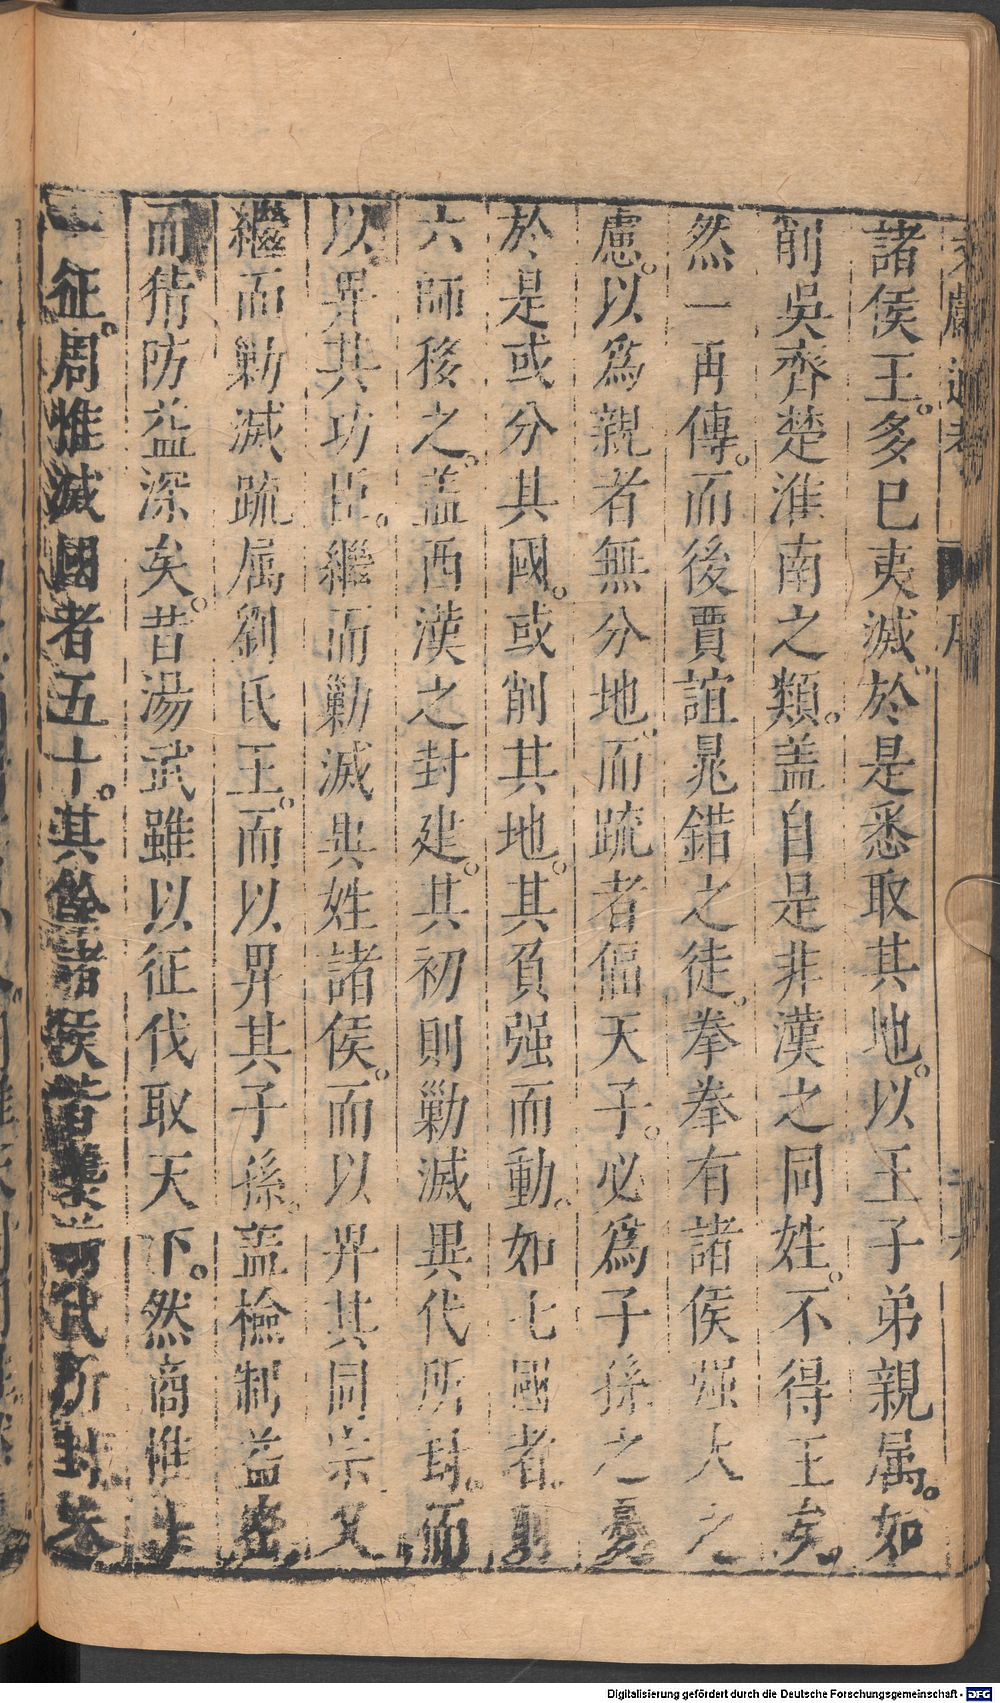 諸侯王。多巳夷滅。於是悉取其地。以王子弟親属。如
削吳齊楚淮南之類。盖自是非漢之同姓。不得王矣。
然一再傳。而後賈誼晁錯之徒。拳拳有諸侯强大之
慮。以爲親者無分地。而疏者偪天子。必爲子孫之憂
於是或分其國。或削其地。其負强而動。如七國者則
六師移之。盖西漢之封建。其初則勦滅異代所封。而
以畀其功臣。繼而勦滅異姓諸侯。而以畀其同宗又
繼而勦滅疏属劉氏王。而以畀其子孫。盖檢制益密
而猜防益深矣。昔湯武雖以征伐取天下。然商惟十
一征。周惟滅國者五十。其餘諸侯皆襲前代所封。未
文獻通考 序
Digitalisierung gefördert durch die Deutsche Forschungsgemeinschaft - DFG